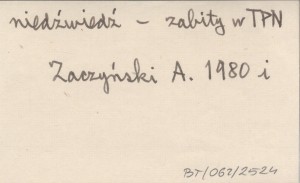 niedźwiedź – zabity w TPN
Zaczyński A. 1980 i
BT/062/2524